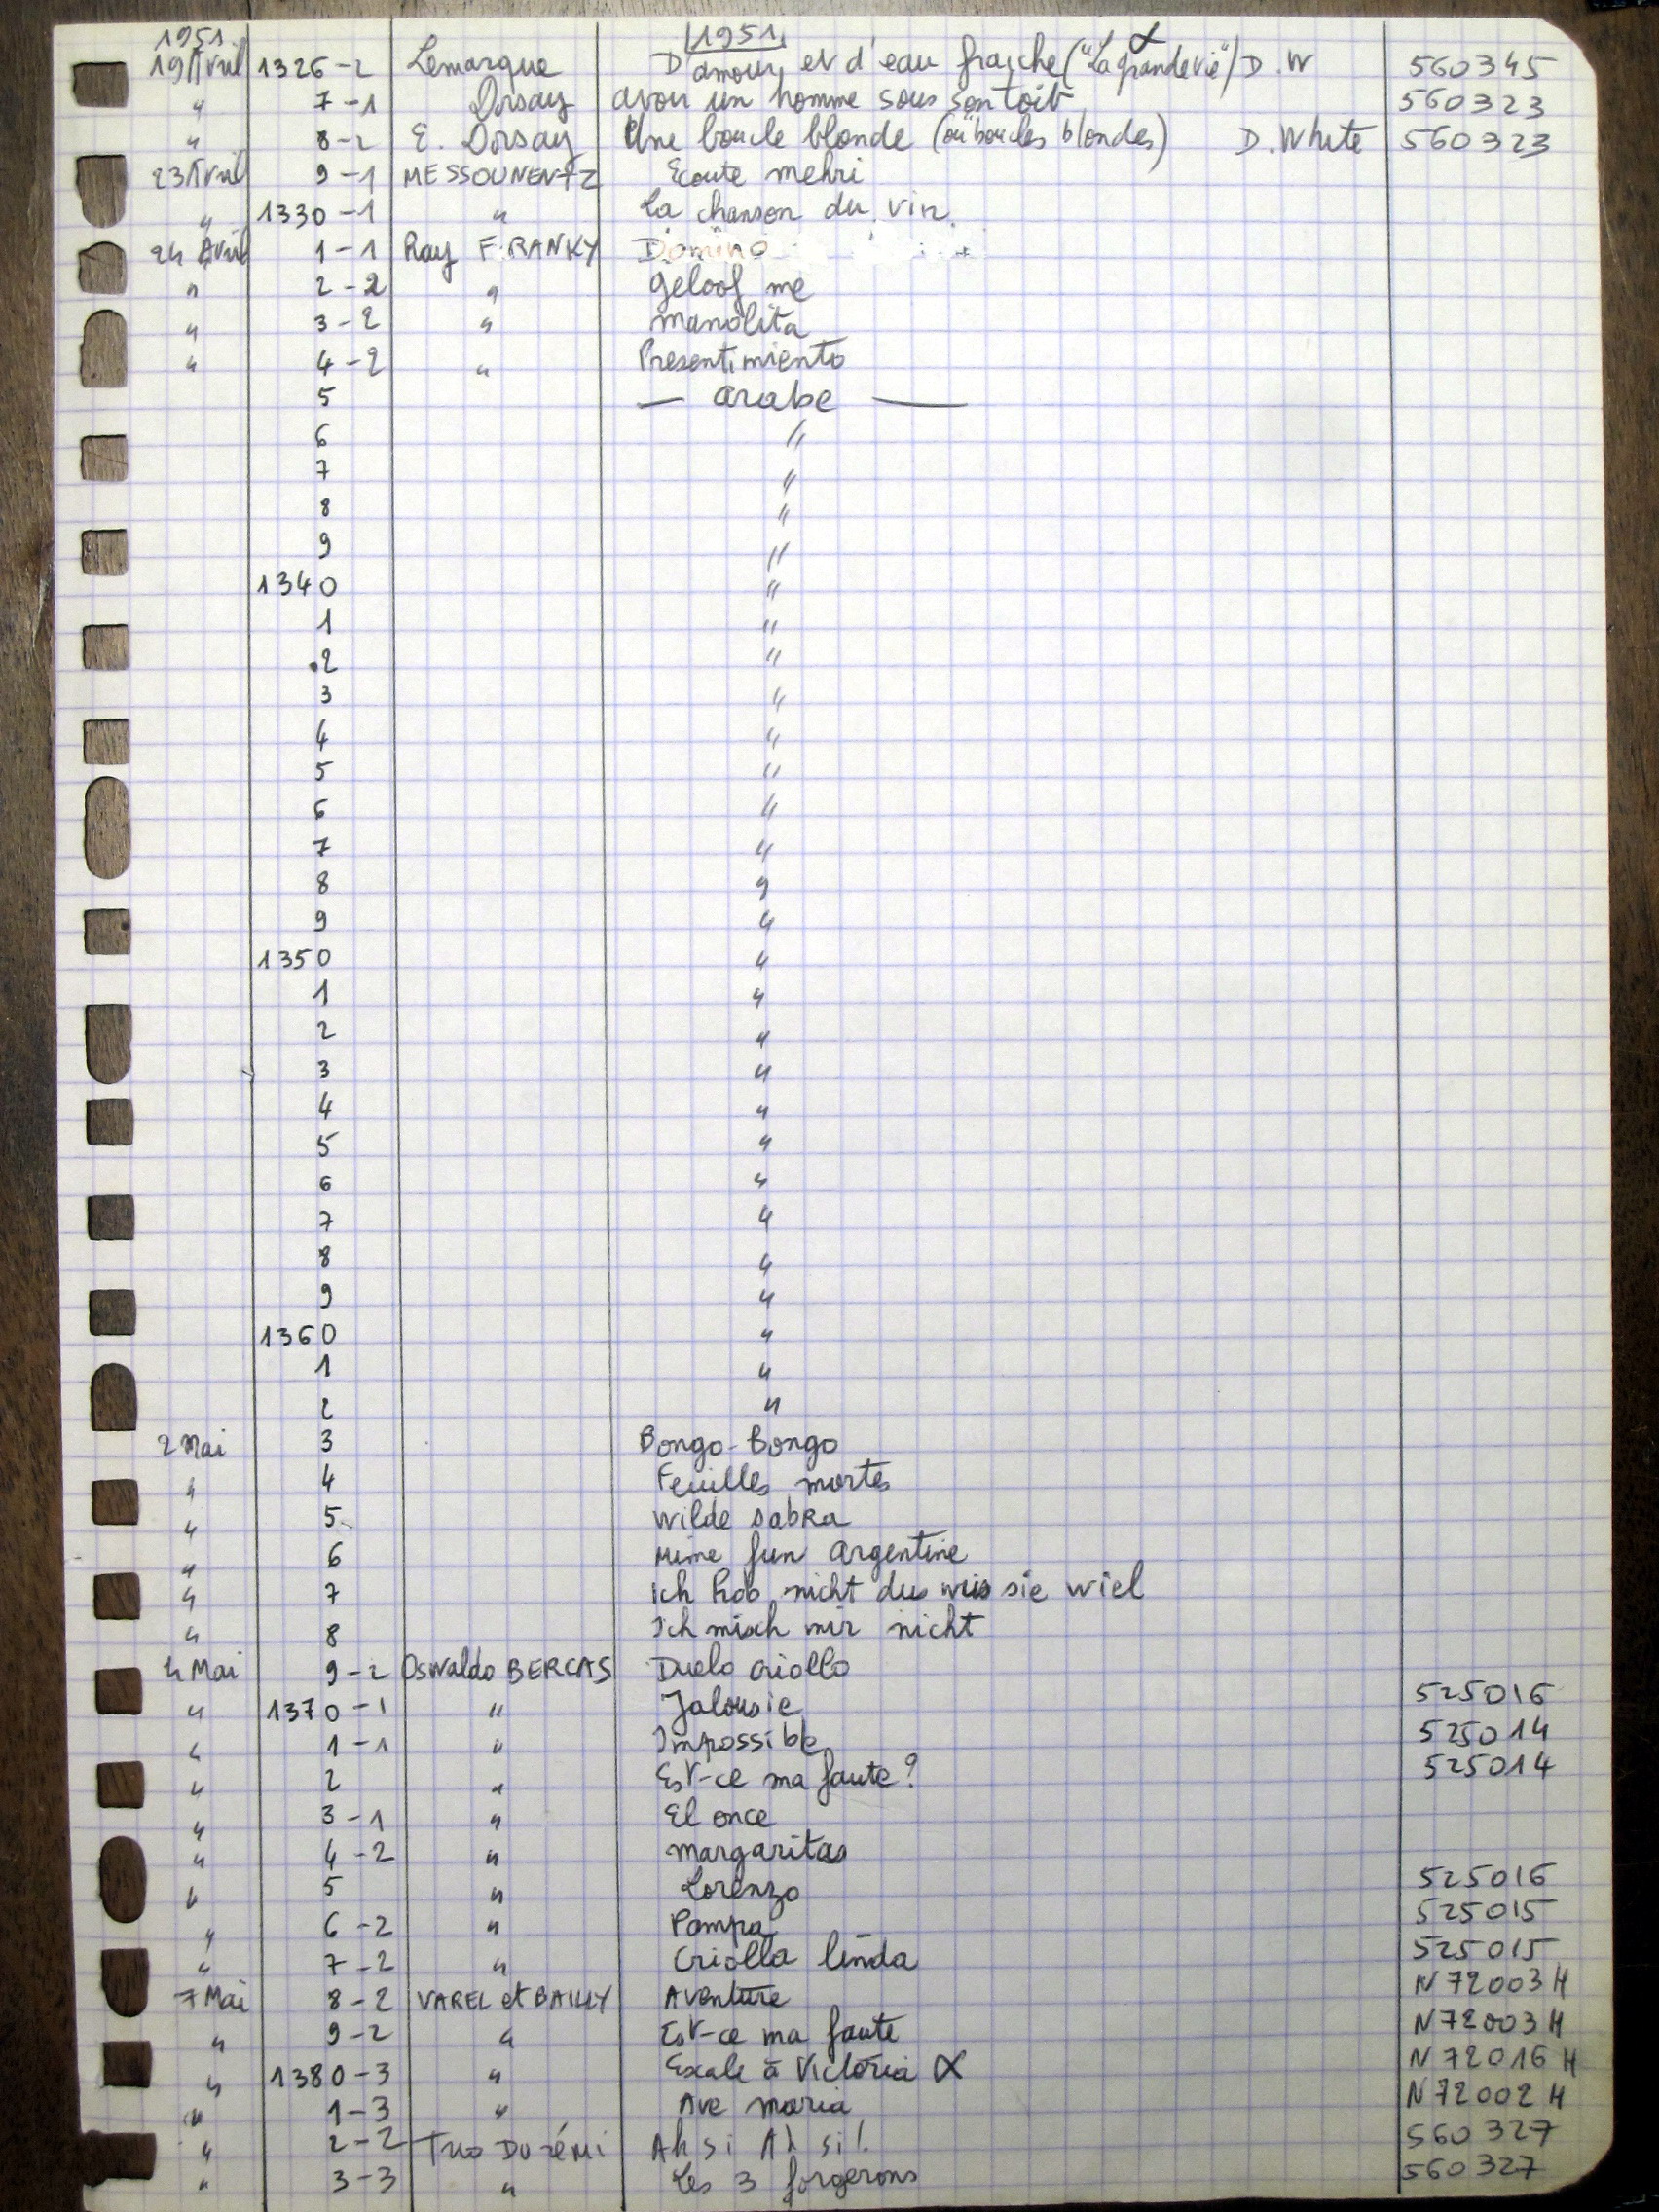 1951 1951
19 Avril 1326-2 Lemarque D'amour et d'eau fraiche ("La grande vie") D.W 560345
" 7-1 Dorsay avoir un homme sous son toit 560323
" 8-2 E. Dorsay Une boucle blonde (ou boucles blondes) D. White 560323
23 Avril 9-1 MESSOUNENTZ Ecoute mehri
" 1330-1 " La chanson du vin
24 Avril 1-1 Ray FRANKY Domino
" 2-2 " geloof me
" 3-2 " manolita
" 4-2 " Presentimiento
5 — arabe —
6 "
7 "
8 "
9 "
1340 "
1 "
2 "
3 "
4 "
5 "
6 "
7 "
8 "
9 "
1350 "
1 "
2 "
3 "
4 "
5 "
6 "
7 "
8 "
9 "
1360 "
1 "
2 "
2 Mai 3 Bongo-Bongo
" 4 Feuilles mortes
" 5 Wilde sabra
" 6 Mime fun argentine
" 7 Ich hob nicht dus wus sie wiel
" 8 Ich misch mir nicht
4 Mai 9-2 Oswaldo BERCAS Duelo criollo
" 1370-1 " Jalousie 525016
" 1-1 " Impossible 525014
" 2 " Est-ce ma faute? 525014
" 3-1 " El once
" 4-2 " margaritas
" 5 " Lorenzo 525016
" 6-2 " Pampa 525015
" 7-2 " Criolla linda 525015
7 Mai 8-2 VAREL et BAILLY Aventure N 72003 H
" 9-2 " Est-ce ma faute N 72003 H
" 1380-3 " Escale à Victoria N 72016 H
" 1-3 " Ave maria N 72002 H
" 2-2 Trio Do rémi Ah si Ah si! 560327
" 3-3 " Les 3 forgerons 560327